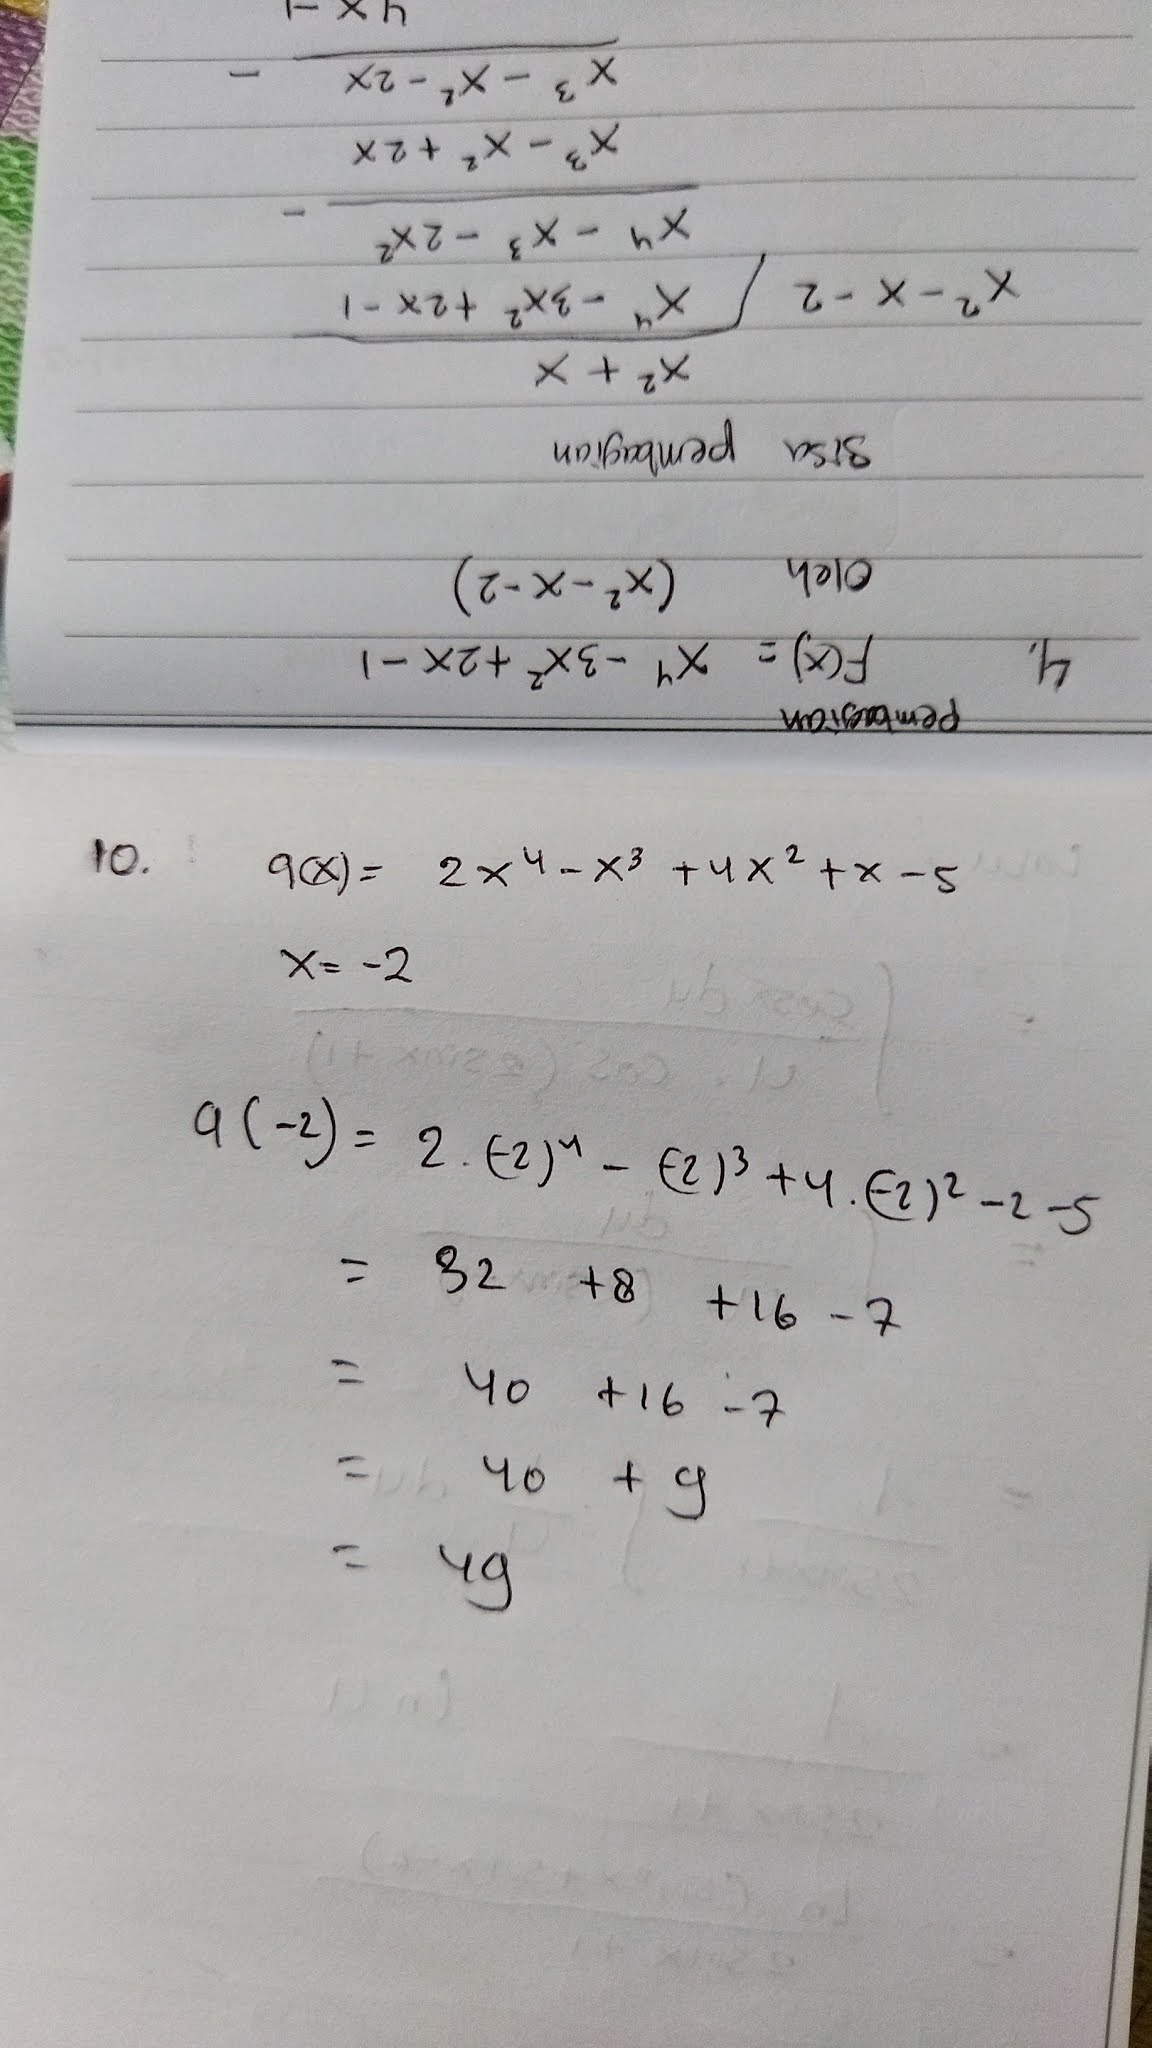 pembagian
4. F(x) = x⁴ - 3x² + 2x - 1
Oleh (x² - x - 2)
Sisa pembagian
x² + x
x² - x - 2 / x⁴ - 3x² + 2x - 1
x⁴ - x³ - 2x²
-
x³ - x² + 2x
x³ - x² - 2x
-
4x - 1
10. q(x) = 2x⁴ - x³ + 4x² + x - 5
x = -2
q(-2) = 2 . (-2)⁴ - (-2)³ + 4 . (-2)² - 2 - 5
= 32 + 8 + 16 - 7
= 40 + 16 - 7
= 40 + 9
= 49